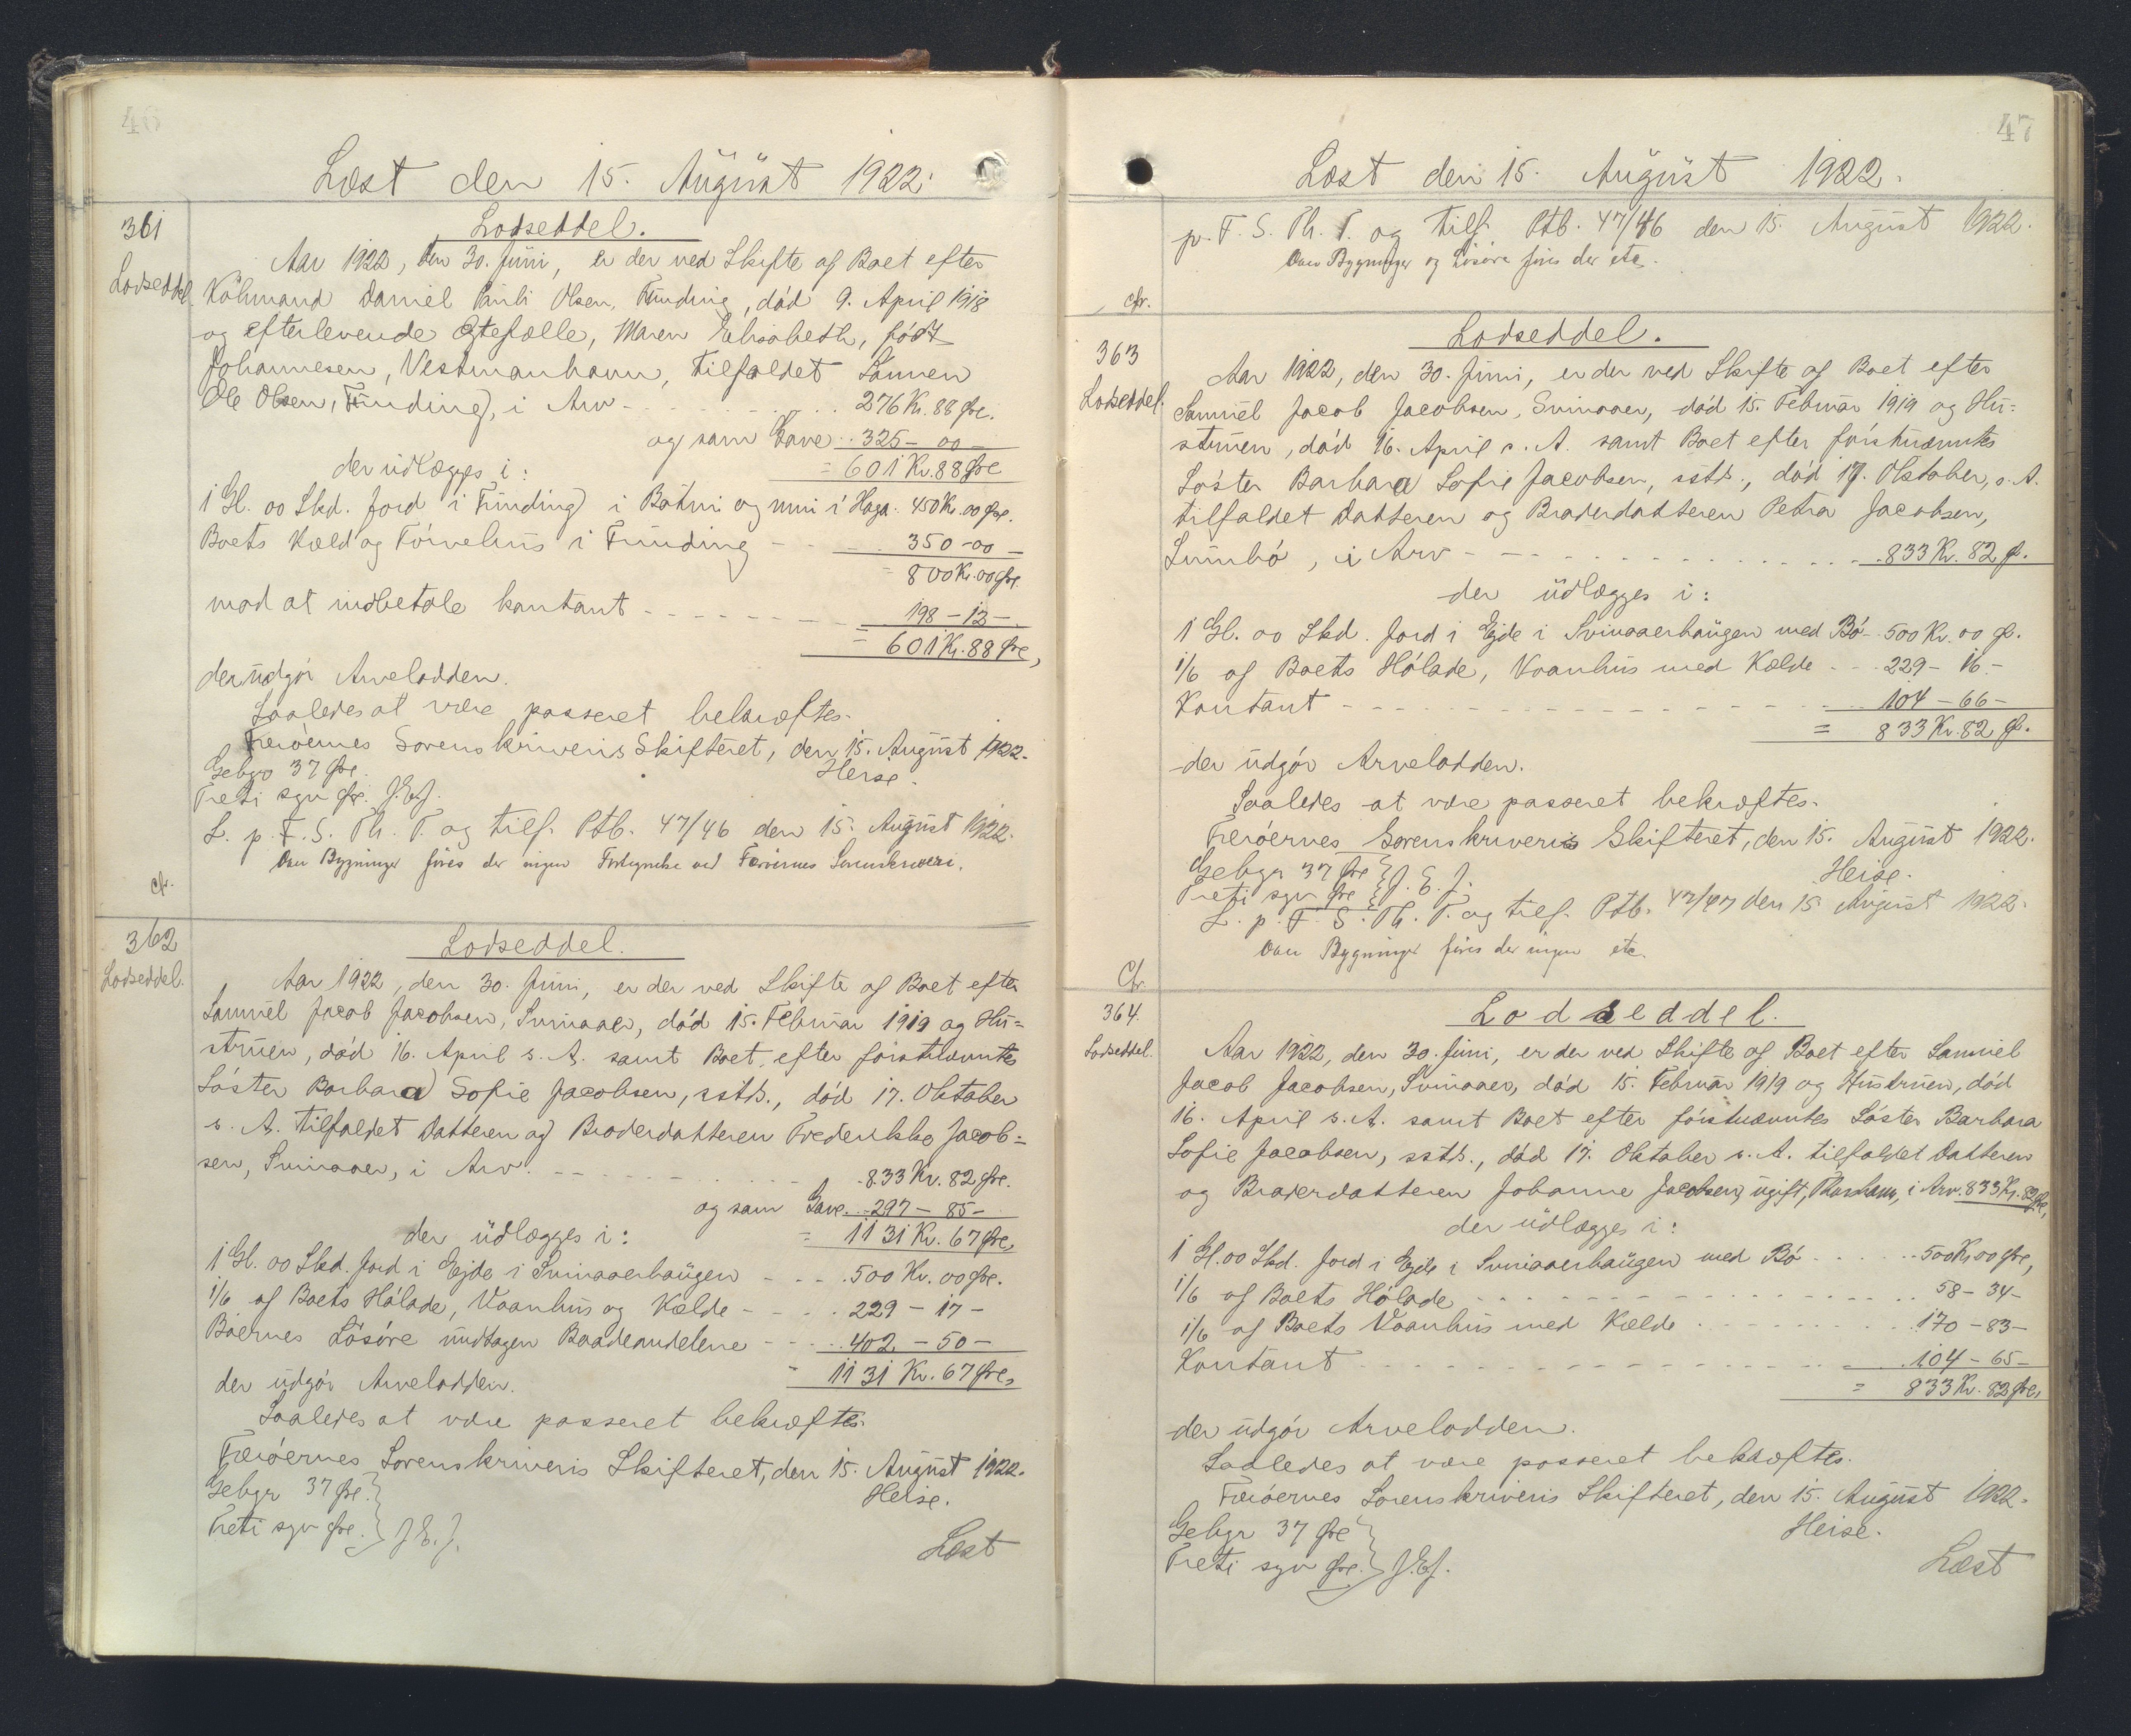 46
Læst den 15. August 1922.
361
Lodseddel
Lodseddel.
Aar 1922, den 30. Juni, er der ved Skifte af Boet efter
Köbmand Daniel Pauli Olsen, Funding, död 9. April 1918
og efterlevende Ægtefælle, Maren Elisabeth, födt
Johannesen, Vestmanhavn, tilfaldet Sönnen
Ole Olsen, Funding, i Arv - 276 Kr. 88 Øre.
og som Gave 325 - 00 -
= 601 Kr. 88 Øre
der udlægges i:
1 Gl. 00 Skd. Jord i Funding i Bötni og uttni i Haga 450 Kr. 00 Øre.
Boets Kæld og Törvehus i Funding - 350 - 00 -
= 800 Kr. 00 Øre.
mod at indbetale kontant - 198 - 12 -
= 601 Kr. 88 Øre,
der udgör Arvelodden.
Saaledes at være passeret bekræftes.
Færöernes Sorenskriveris Skifteret, den 15. August 1922.
Gebyr 37 Øre. Heise.
Treti syv Øre. J.E.J.
L. p. F. S. Th. T. og tilf. Ptb. 47/46 den 15. August 1922.
Over Bygninger föres der ingen Fortegnelse ved Færöernes Sorenskriveri.
cfr.
362
Lodseddel.
Lodseddel.
Aar 1922, den 30. Juni, er der ved Skifte af Boet efter
Samuel Jacob Jacobsen, Svinaaer, död 15. Februar 1919 og Hu=
struen, död 16. April s. A. samt Boet efter förstnævntes
Söster Barbara Sofie Jacobsen, sstds., död 17. Oktober
s. A. tilfaldet Datteren og Broderdatteren Frederikke Jacob=
sen, Svinaaer, i Arv. - 833 Kr. 82 Øre.
og som Gave. 297 - 85 -
= 1131 Kr. 67 Øre,
der udlægges i:
1 Gl. 00 Skd. Jord i Ejde i Svinaaerhaugen - 500 Kr. 00 Øre.
1/6 af Boets Hölade, Vaanhus og Kælde - 229 - 17 -
Boernes Lösöre undtagen Baadeandelene - 402 - 50 -
= 1131 Kr. 67 Øre,
der udgör Arvelodden.
Saaledes at være passeret bekræftes.
Færöernes Sorenskriveris Skifteret, den 15. August 1922.
Gebyr 37 Øre. Heise.
Treti syv Øre. J.E.J.
Læst
47
Læst den 15. August 1922.
p. F. S. Th. T. og tilf. Ptb. 47/46 den 15. August 1922.
Over Bygninger og Lösöre föres der etc.
cfr.
363
Lodseddel.
Lodseddel.
Aar 1922, den 30. Juni, er der ved Skifte af Boet efter
Samuel Jacob Jacobsen, Svinaaer, död 15. Februar 1919 og Hu=
struen, död 16. April s. A. samt Boet efter förstnævntes
Söster Barbara Sofie Jacobsen, sstds., död 17. Oktober, s. A.
tilfaldet Datteren og Broderdatteren Petra Jacobsen,
Sumbö, i Arv - 833 Kr. 82 Ø.
der udlægges i:
1 Gl. 00 Skd. Jord i Ejde i Svinaaerhaugen med Bö - 500 Kr. 00 Ø.
1/6 af Boets Hölade, Vaanhus med Kælde - 229 - 16 -
Kontant - 104 - 66 -
= 833 Kr. 82 Ø.
der udgör Arvelodden.
Saaledes at være passeret bekræftes.
Færöernes Sorenskriveris Skifteret, den 15. August 1922.
Gebyr 37 Øre J.E.J. Heise.
Treti syv Øre
L. p. F. S. Th. T. og tilf. Ptb. 47/47 den 15. August 1922.
Over Bygninger föres der ingen etc.
Cfr.
364.
Lodseddel.
Lodseddel.
Aar 1922, den 30. Juni, er der ved Skifte af Boet efter Samuel
Jacob Jacobsen, Svinaaer, död 15. Februar 1919 og Hustruen, död
16. April s. A. samt Boet efter förstnævntes Söster Barbara
Sofie Jacobsen, sstds., död 17. Oktober s. A. tilfaldet Datteren
og Broderdatteren Johanne Jacobsen, ugift, Thorshavn, i Arv. 833 Kr. 82 Øre,
der udlægges i:
1 Gl. 00 Skd. Jord i Ejde i Svinaaerhaugen med Bö - 500 Kr. 00 Øre,
1/6 af Boets Hölade - 58 - 34 -
1/6 af Boets Vaanhus med Kælde - 170 - 83 -
Kontant - 104 - 65 -
= 833 Kr. 82 Øre,
der udgör Arvelodden.
Saaledes at være passeret bekræftes.
Færöernes Sorenskriveris Skifteret, den 15. August 1922.
Gebyr 37 Øre Heise.
Treti syv Øre. J.E.J.
Læst